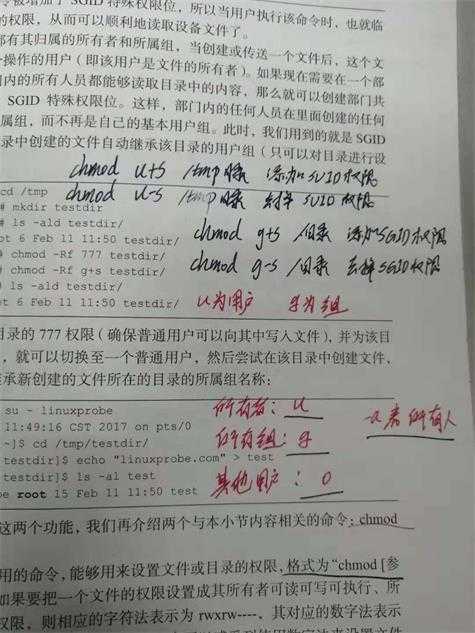 令被增加了 SGID 特殊权限位，所以当用户执行该命令时，也就临
的权限，从而可以顺利地读取设备文件了。
都有其归属的所有者和所属组，当创建或传送一个文件后，这个文
操作的用户（即该用户是文件的所有者）。如果现在需要在一个部
门内的所有人员都能够读取目录中的内容，那么就可以创建部门共
SGID 特殊权限位。这样，部门内的任何人员在里面创建的任何
属组，而不再是自己的基本用户组。此时，我们用到的就是 SGID
录中创建的文件自动继承该目录的用户组（只可以对目录进行设
chmod u+s /tmp目录 添加SUID权限
cd /tmp chmod u-s /tmp目录 去掉SUID权限
# mkdir testdir
# ls -ald testdir/
ot 6 Feb 11 11:50 testdir/ chmod g+s /目录 添加SGID权限
# chmod -Rf 777 testdir/
# chmod -Rf g+s testdir/ chmod g-s /目录 去掉SGID权限
# ls -ald testdir/
ot 6 Feb 11 11:50 testdir/ u为用户 g为组
目录的 777 权限（确保普通用户可以向其中写入文件），并为该目
，就可以切换至一个普通用户，然后尝试在该目录中创建文件，
继承新创建的文件所在的目录的所属组名称：
su - linuxprobe 所有者：u
11:49:16 CST 2017 on pts/0 所有人
~]$ cd /tmp/testdir/ 所有组：g
testdir]$ echo "linuxprobe.com" > test
testdir]$ ls -al test 其他用户：o
be root 15 Feb 11 11:50 test
这两个功能，我们再介绍两个与本小节内容相关的命令：chmod
用的命令，能够用来设置文件或目录的权限，格式为“chmod [参
如果要把一个文件的权限设置成其所有者可读可写可执行、所
权限，则相应的字符法表示为 rwxrw----，其对应的数字法表示